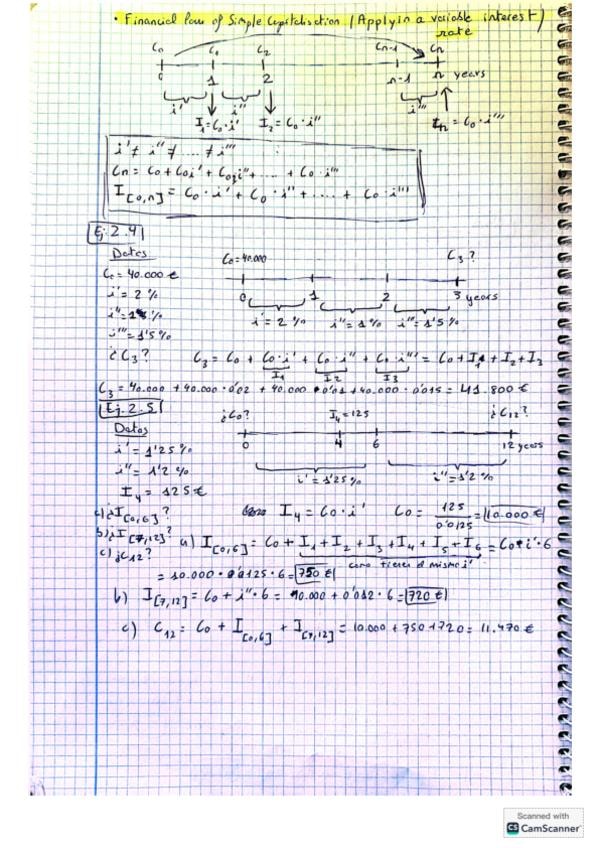 • Financial law of Simple Capitalisation (Applyin a variable interest)
rate
C₀ C₁ C₂ Cn-1 Cn
0 1 2 n-1 n years
i' i'' i'''
I₁=C₀·i' I₂=C₀·i'' In=C₀·i'''
i' ≠ i'' ≠ .... ≠ i'''
Cn = C₀ + C₀i' + C₀i'' + .... + C₀·i'''
I[0,n] = C₀·i' + C₀·i'' + .... + C₀·i'''
Ej: 2.4
Datos
C₀=40.000 C₃?
C₀ = 40.000 €
0 1 2 3 years
i' = 2%
i'' = 1%
i' = 2% i'' = 1% i''' = 1'5%
i''' = 1'5%
¿C₃? C₃ = C₀ + C₀·i' + C₀·i'' + C₀·i''' = C₀ + I₁ + I₂ + I₃
I₁ I₂ I₃
C₃ = 40.000 + 40.000·0'02 + 40.000·0'01 + 40.000·0'015 = 41.800 €
Ej. 2.5
¿C₀? I₄=125 ¿C₁₂?
Datos
0 4 6 12 years
i' = 1'25%
i' = 1'25% i'' = 1'2%
i'' = 1'2%
I₄ = 125 €
a) ¿I[0,6]?
I₄ = C₀·i' C₀ = 125/0'0125 = 10.000 €
b) ¿I[7,12]?
c) ¿C12?
a) I[0,6] = C₀ + I₁ + I₂ + I₃ + I₄ + I₅ + I₆ = C₀·i'·6
como tienen el mismo i'
= 10.000·0'0125·6 = 750 €
b) I[7,12] = C₀ + i''·6 = 10.000 + 0'012·6 = 720 €
c) C₁₂ = C₀ + I[0,6] + I[7,12] = 10.000 + 750 + 720 = 11.470 €
Scanned with
CS CamScanner